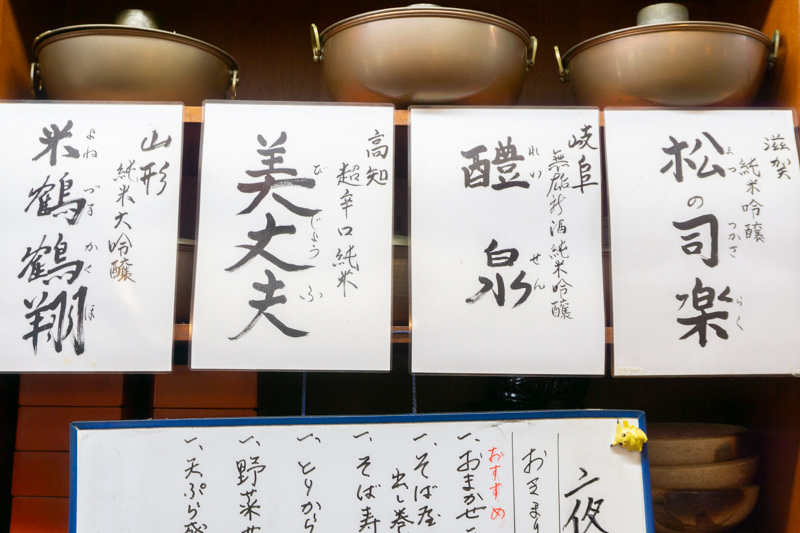 滋賀
純米吟醸
松の司楽
まつ つかさ らく
岐阜
無濾過新酒純米吟醸
醴泉
れい せん
高知
超辛口純米
美丈夫
び じょう ふ
山形
純米大吟醸
米鶴鶴翔
よね づる かく
おきまり
おすすめ
一、おまかせ
一、そば屋
出し巻
一、そば寿
一、とりから
一、野菜
一、天ぷら盛